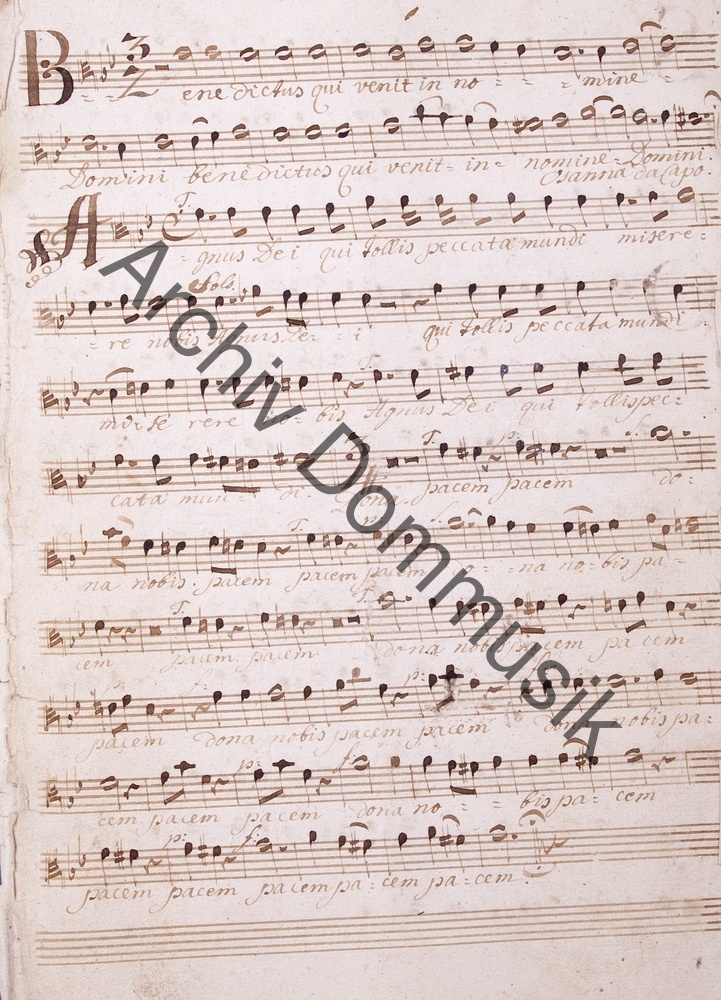 Benedictus qui venit in no - - - mine -
Domini benedictus qui venit - in - nomine - Domini.
Osanna da Capo.
T.
Agnus Dei qui tollis peccata mundi misere =
Solo.
= re nobis Agnus De - - i qui tollis peccata mundi
T.
mise rere no - bis Agnus Dei qui tollis pec =
T. p: f.
cata mun - di - Dona pacem pacem do =
T.
na nobis pacem pacem pacem do - - na no - bis pa -
T. T.
cem pacem pacem dona nobis pacem pa cem
p: f: p: f:
pacem dona nobis pacem pacem dona nobis pa =
p: f:
cem pacem pacem dona no - - - bis pa - cem
p: f:
pacem pacem pacem pa = cem pa = cem
Archiv Dommusik